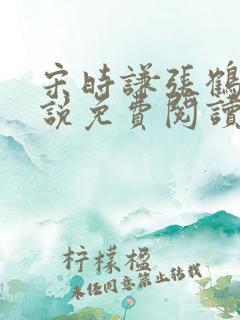 宋時謙張鶴
說免費閱讀
柠檬楹
未经同意禁止转载